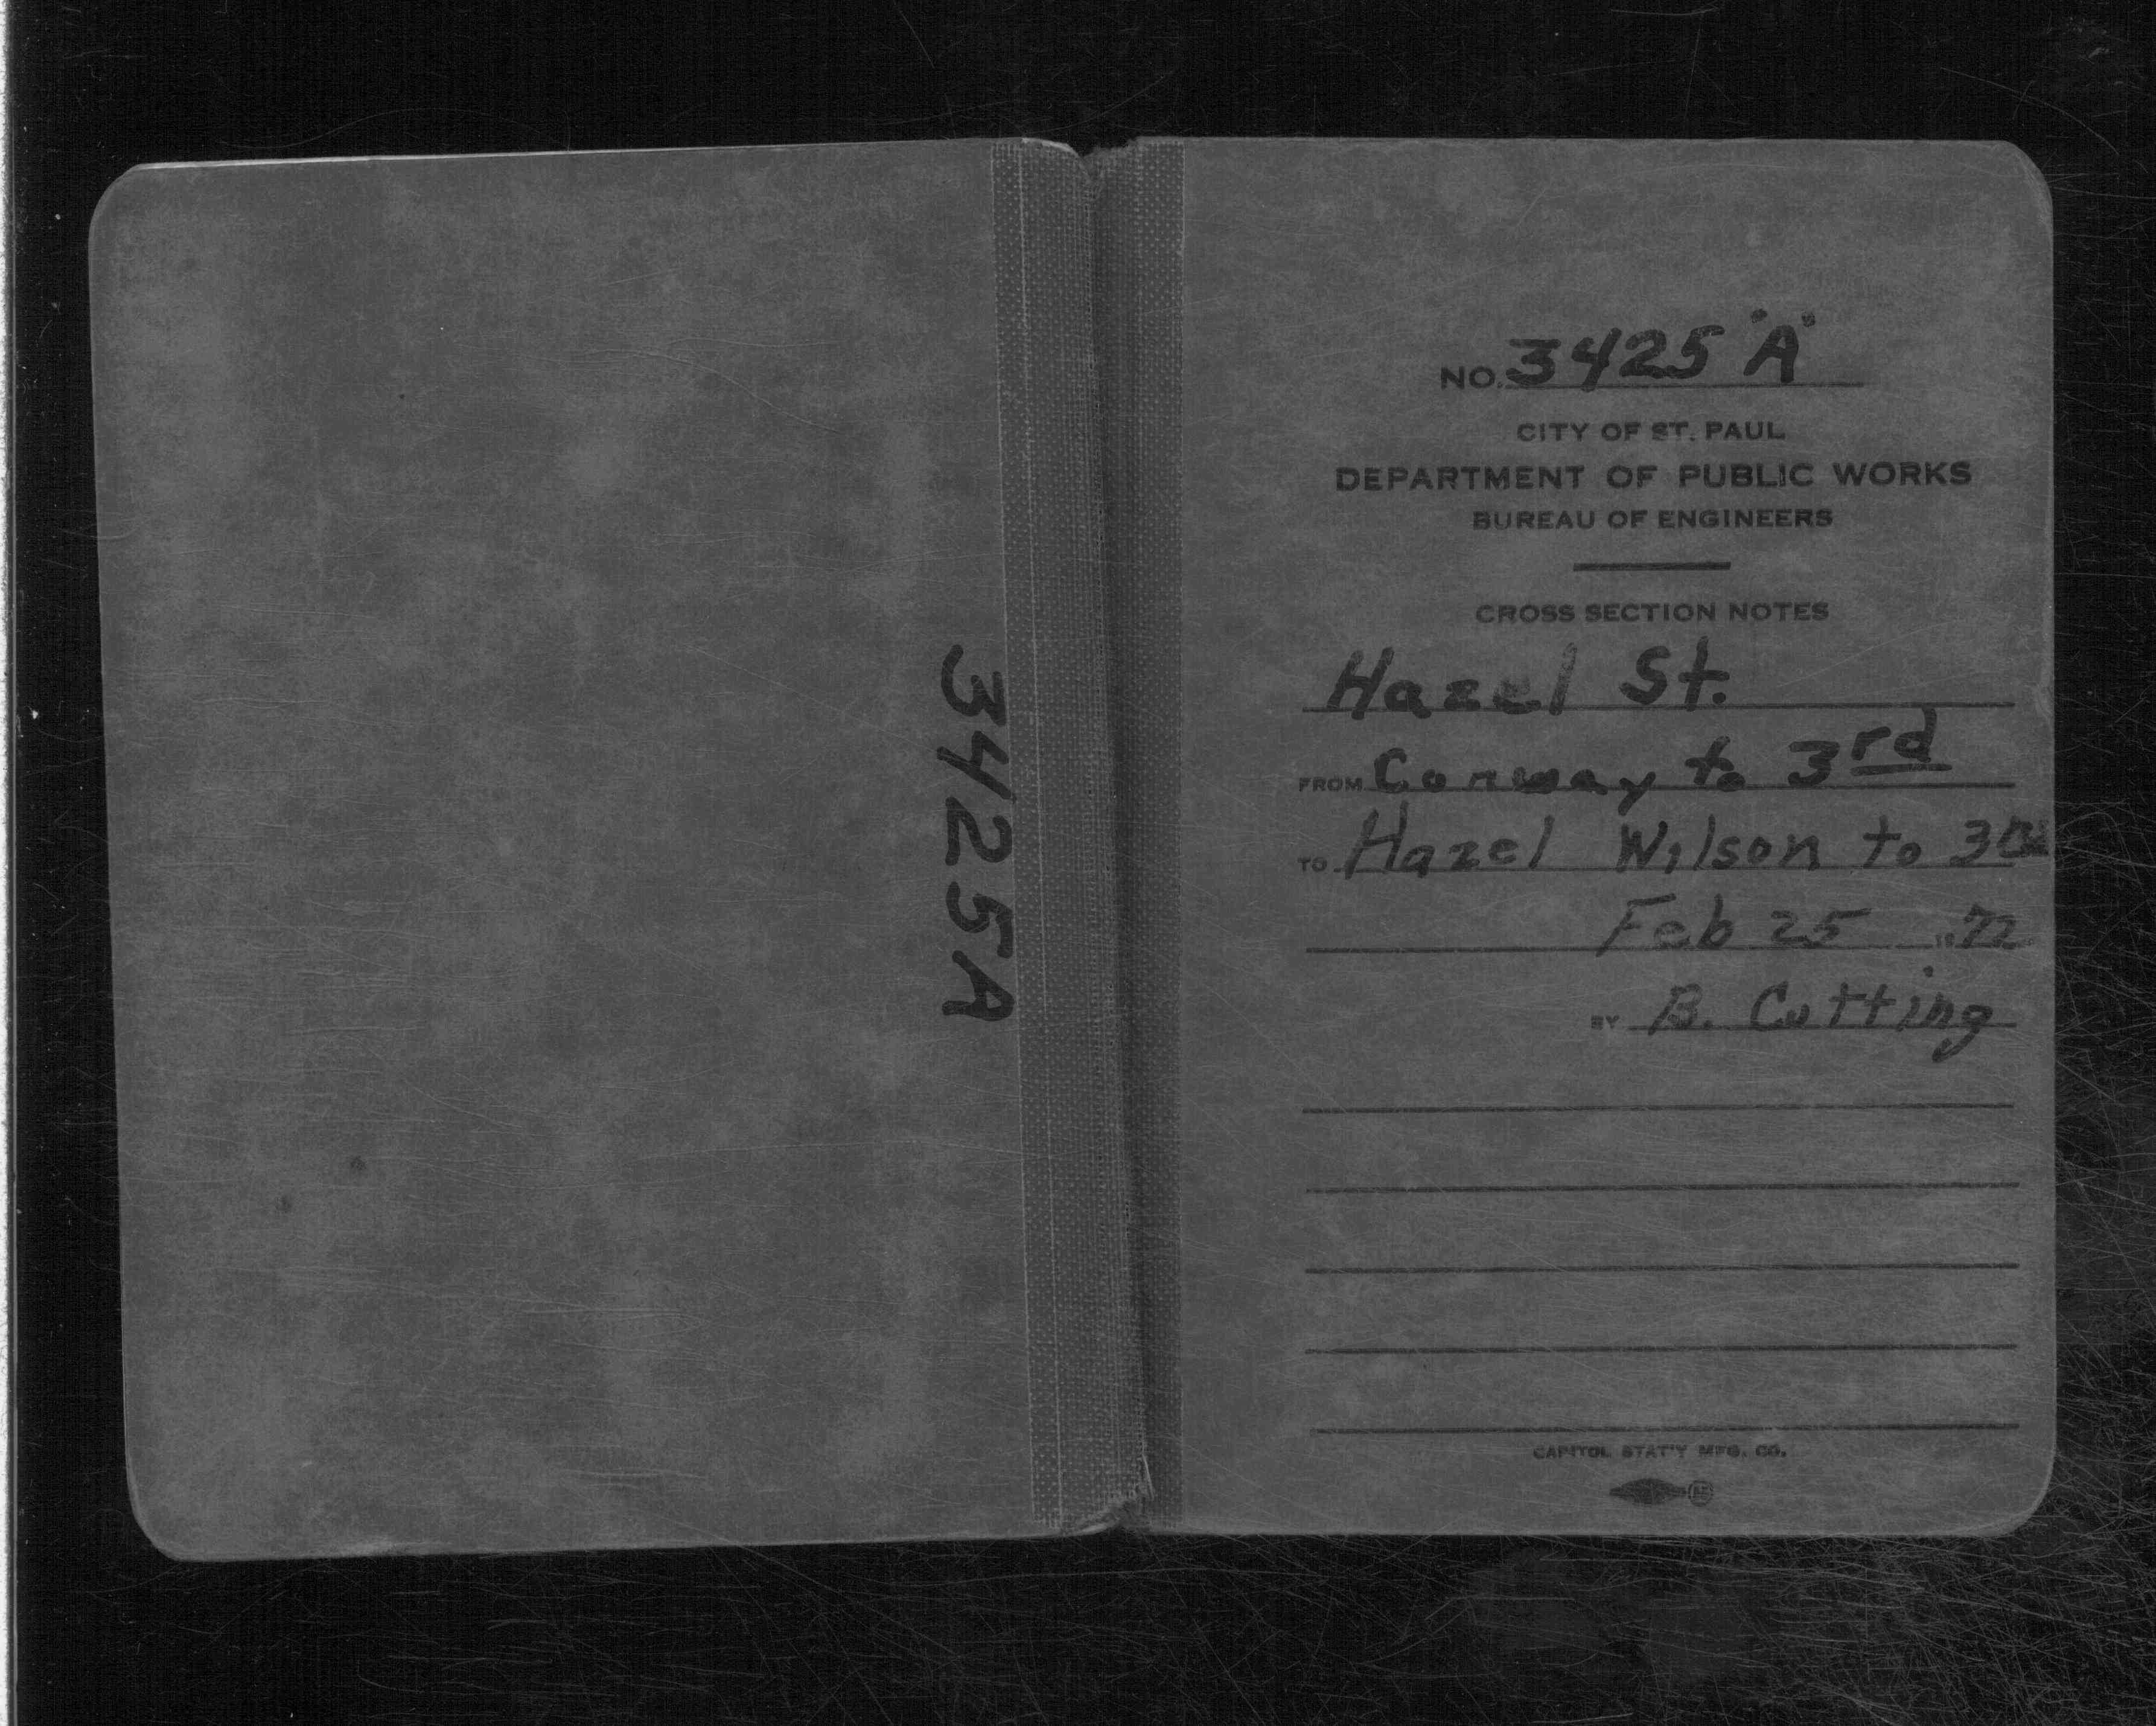 3425A
NO. 3425 "A"
CITY OF ST. PAUL
DEPARTMENT OF PUBLIC WORKS
BUREAU OF ENGINEERS
CROSS SECTION NOTES
Hazel St.
FROM Conway to 3rd
TO Hazel Wilson to 3rd
Feb 25 1972
BY B. Cutting
CAPITOL STAT'Y MFG. CO.